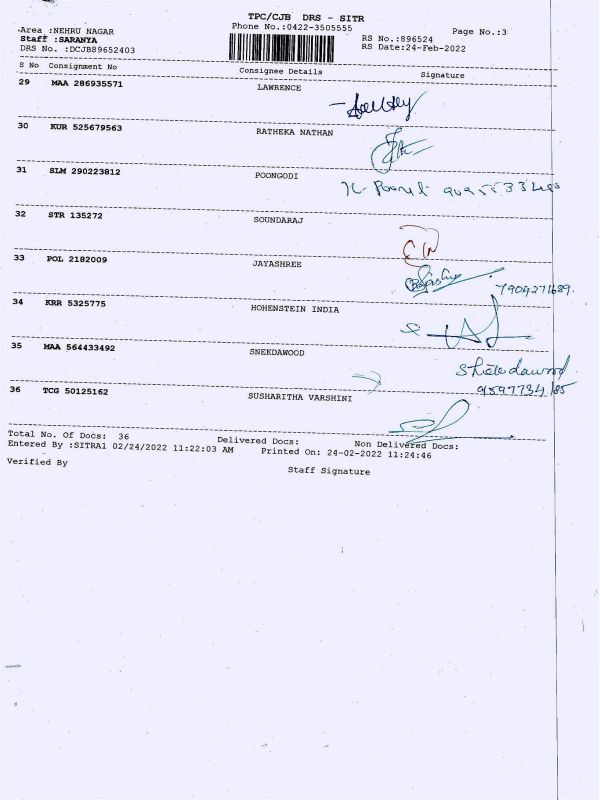 TPC/CJB DRS - SITR
Area :NEHRU NAGAR
Phone No.:0422-3505555
Page No.:3
Staff :SARANYA
RS No.:896524
DRS No. :DCJB89652403
RS Date:24-Feb-2022
S No Consignment No Consignee Details Signature
29 MAA 286935571 LAWRENCE
30 KUR 525679563 RATHEKA NATHAN
31 SLM 290223812 POONGODI
32 STR 135272 SOUNDARAJ
33 POL 2182009 JAYASHREE
7904271689.
34 KRR 5325775 HOHENSTEIN INDIA
35 MAA 564433492 SNEKDAWOOD
36 TCG 50125162 SUSHARITHA VARSHINI
Total No. Of Docs: 36 Delivered Docs: Non Delivered Docs:
Entered By :SITRA1 02/24/2022 11:22:03 AM Printed On: 24-02-2022 11:24:46
Verified By Staff Signature